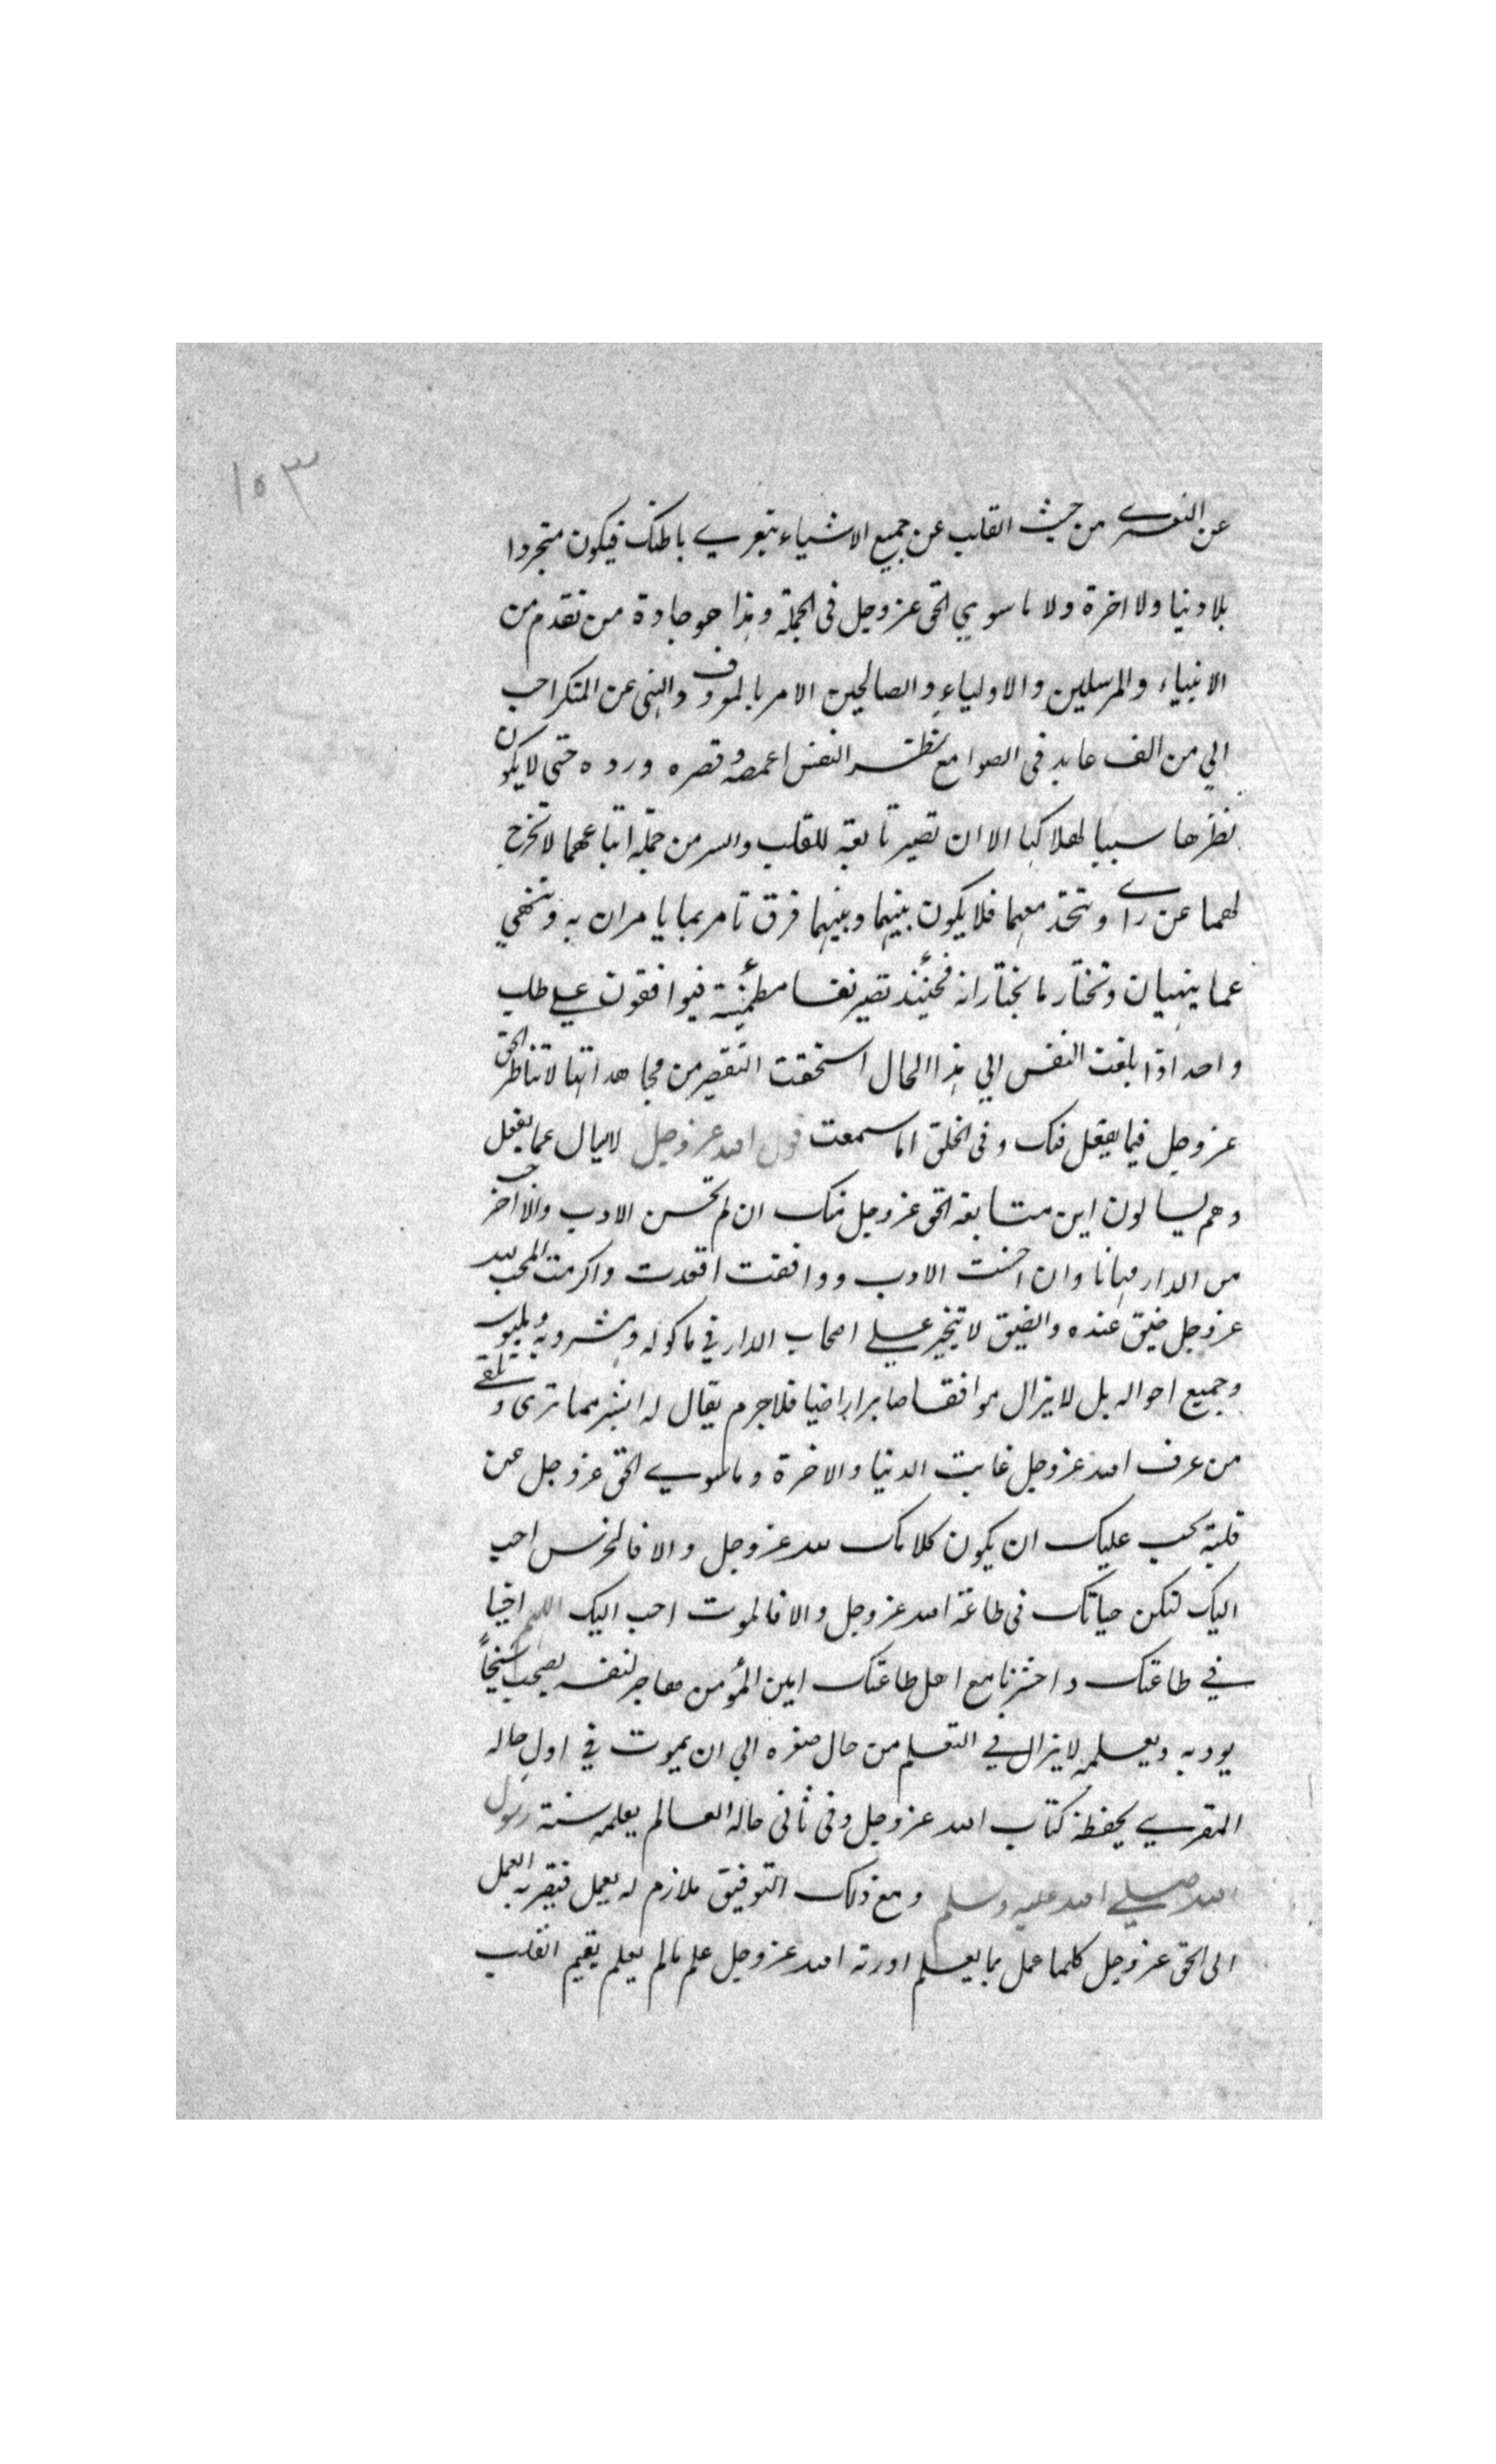 ١٥٣
عن التعرے من حيث القلب عن جميع الاشياء يتعرے باطنك فيكون متجردا
بلا دنيا ولا اخرة ولا ما سوي الحق عز وجل فى الجملة وهذا هو جادة من تقدم من
الانبياء والمرسلين والاولياء والصالحين الامر بالمعروف والنهى عن المنكر احب
الي من الف عابد فى الصوامع نظر النفس اغمضه وقصره ورده حتى لا يكون
نظرها سببا لهلاكها الا ان تصير تابعة للقلب والسر من جملة اتباعهما لا تخرج
لهما عن راے وتتحد معهما فلا يكون بينها وبينهما فرق تامر بما يامران به وتنهي
عما ينهيان وتختار ما يختارانه فحينئذ تصير نفسا مطمئنة فيوافقون علے طلب
واحد اذا بلغت النفس الي هذا الحال استحقت التقصير من مجاهداتها لا تناظر الحق
عز وجل فيما يفعل فيك وفى الخلق اما سمعت قول الله عز وجل لا يسال عما يفعل
وهم يسالون اين متابعة الحق عز وجل منك ان لم تحسن الادب والا اخرجت
من الدار مهانا وان احسنت الادب ووافقت اقعدت واكرمت المحب لله
عز وجل ضيق عنده والضيق لا يتخير علے اصحاب الدار في ماكوله ومشروبه وملبوسه
وجميع احواله بل لا يزال موافقا صابرا راضيا فلا جرم يقال له ابشر مما ترى وتلقے
من عرف الله عز وجل غابت الدنيا والاخرة وما سوے الحق عز وجل عن
قلبه يجب عليك ان يكون كلامك لله عز وجل والا فالخرس احب
اليك لتكن حياتك فى طاعة الله عز وجل والا فالموت احب اليك اللهم احينا
في طاعتك واحشرنا مع اهل طاعتك امين المؤمن مهاجر لنفسه يصحب شيخاً
يودبه ويعلمه لا يزال في التعلم من حال صغره الي ان يموت في اول حاله
المقرے يحفظه كتاب الله عز وجل وفى ثانى حاله العالم يعلمه سنة رسول
الله صلے الله عليه وسلم ومع ذلك التوفيق ملازم له يعمل فيقربه العمل
الى الحق عز وجل كلما عمل بما يعلم اورثه الله عز وجل علم ما لم يعلم يقيم القلب